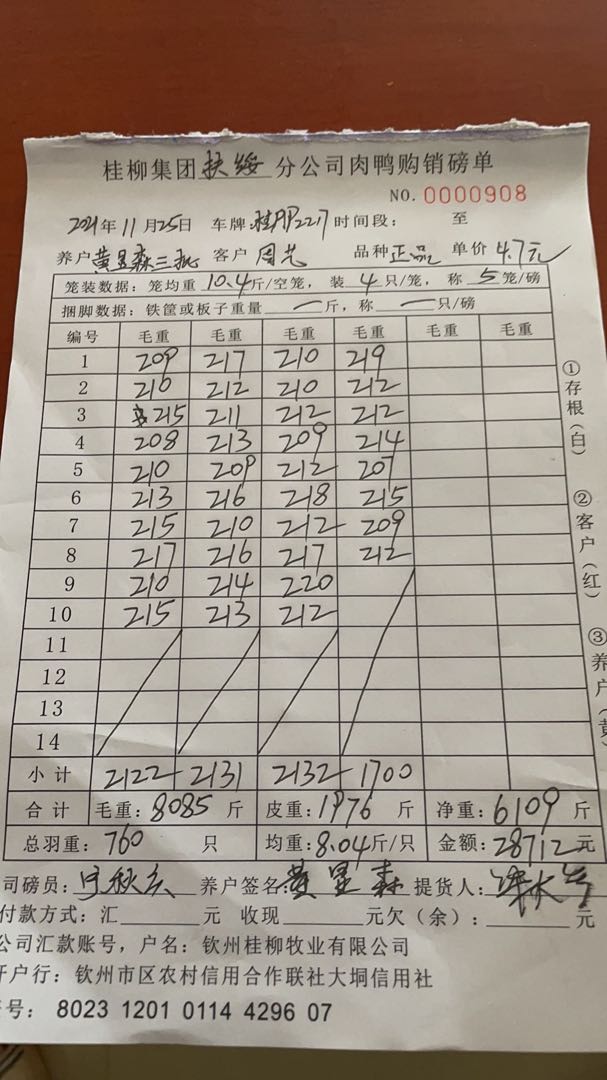 桂柳集团扶绥分公司肉鸭购销磅单
NO. 0000908
2021年11月25日 车牌: 2217 时间段: 至
养户 黄显森三批 客户 周艺 品种 正品 单价 4.7元
笼装数据: 笼均重 10.4 斤/空笼, 装 4 只/笼, 称 5 笼/磅
捆脚数据: 铁筐或板子重量 一 斤, 称 一 只/磅
编号 毛重 毛重 毛重 毛重 毛重 毛重
1 209 217 210 219
2 210 212 210 212
3 215 211 212 212
4 208 213 209 214
5 210 209 212 207
6 213 216 218 215
7 215 210 212 209
8 217 216 217 212
9 210 214 220
10 215 213 212
11
12
13
14
小计 2122 2131 2132 1700
合计 毛重: 8085 斤 皮重: 1976 斤 净重: 6109 斤
总羽重: 760 只 均重: 8.04斤/只 金额: 28712 元
司磅员: 养户签名: 黄显森 提货人:
付款方式: 汇 元 收现 元欠(余): 元
公司汇款账号, 户名: 钦州桂柳牧业有限公司
开户行: 钦州市区农村信用合作联社大垌信用社
号: 8023 1201 0114 4296 07
①存根(白)
②客户(红)
③养户(黄